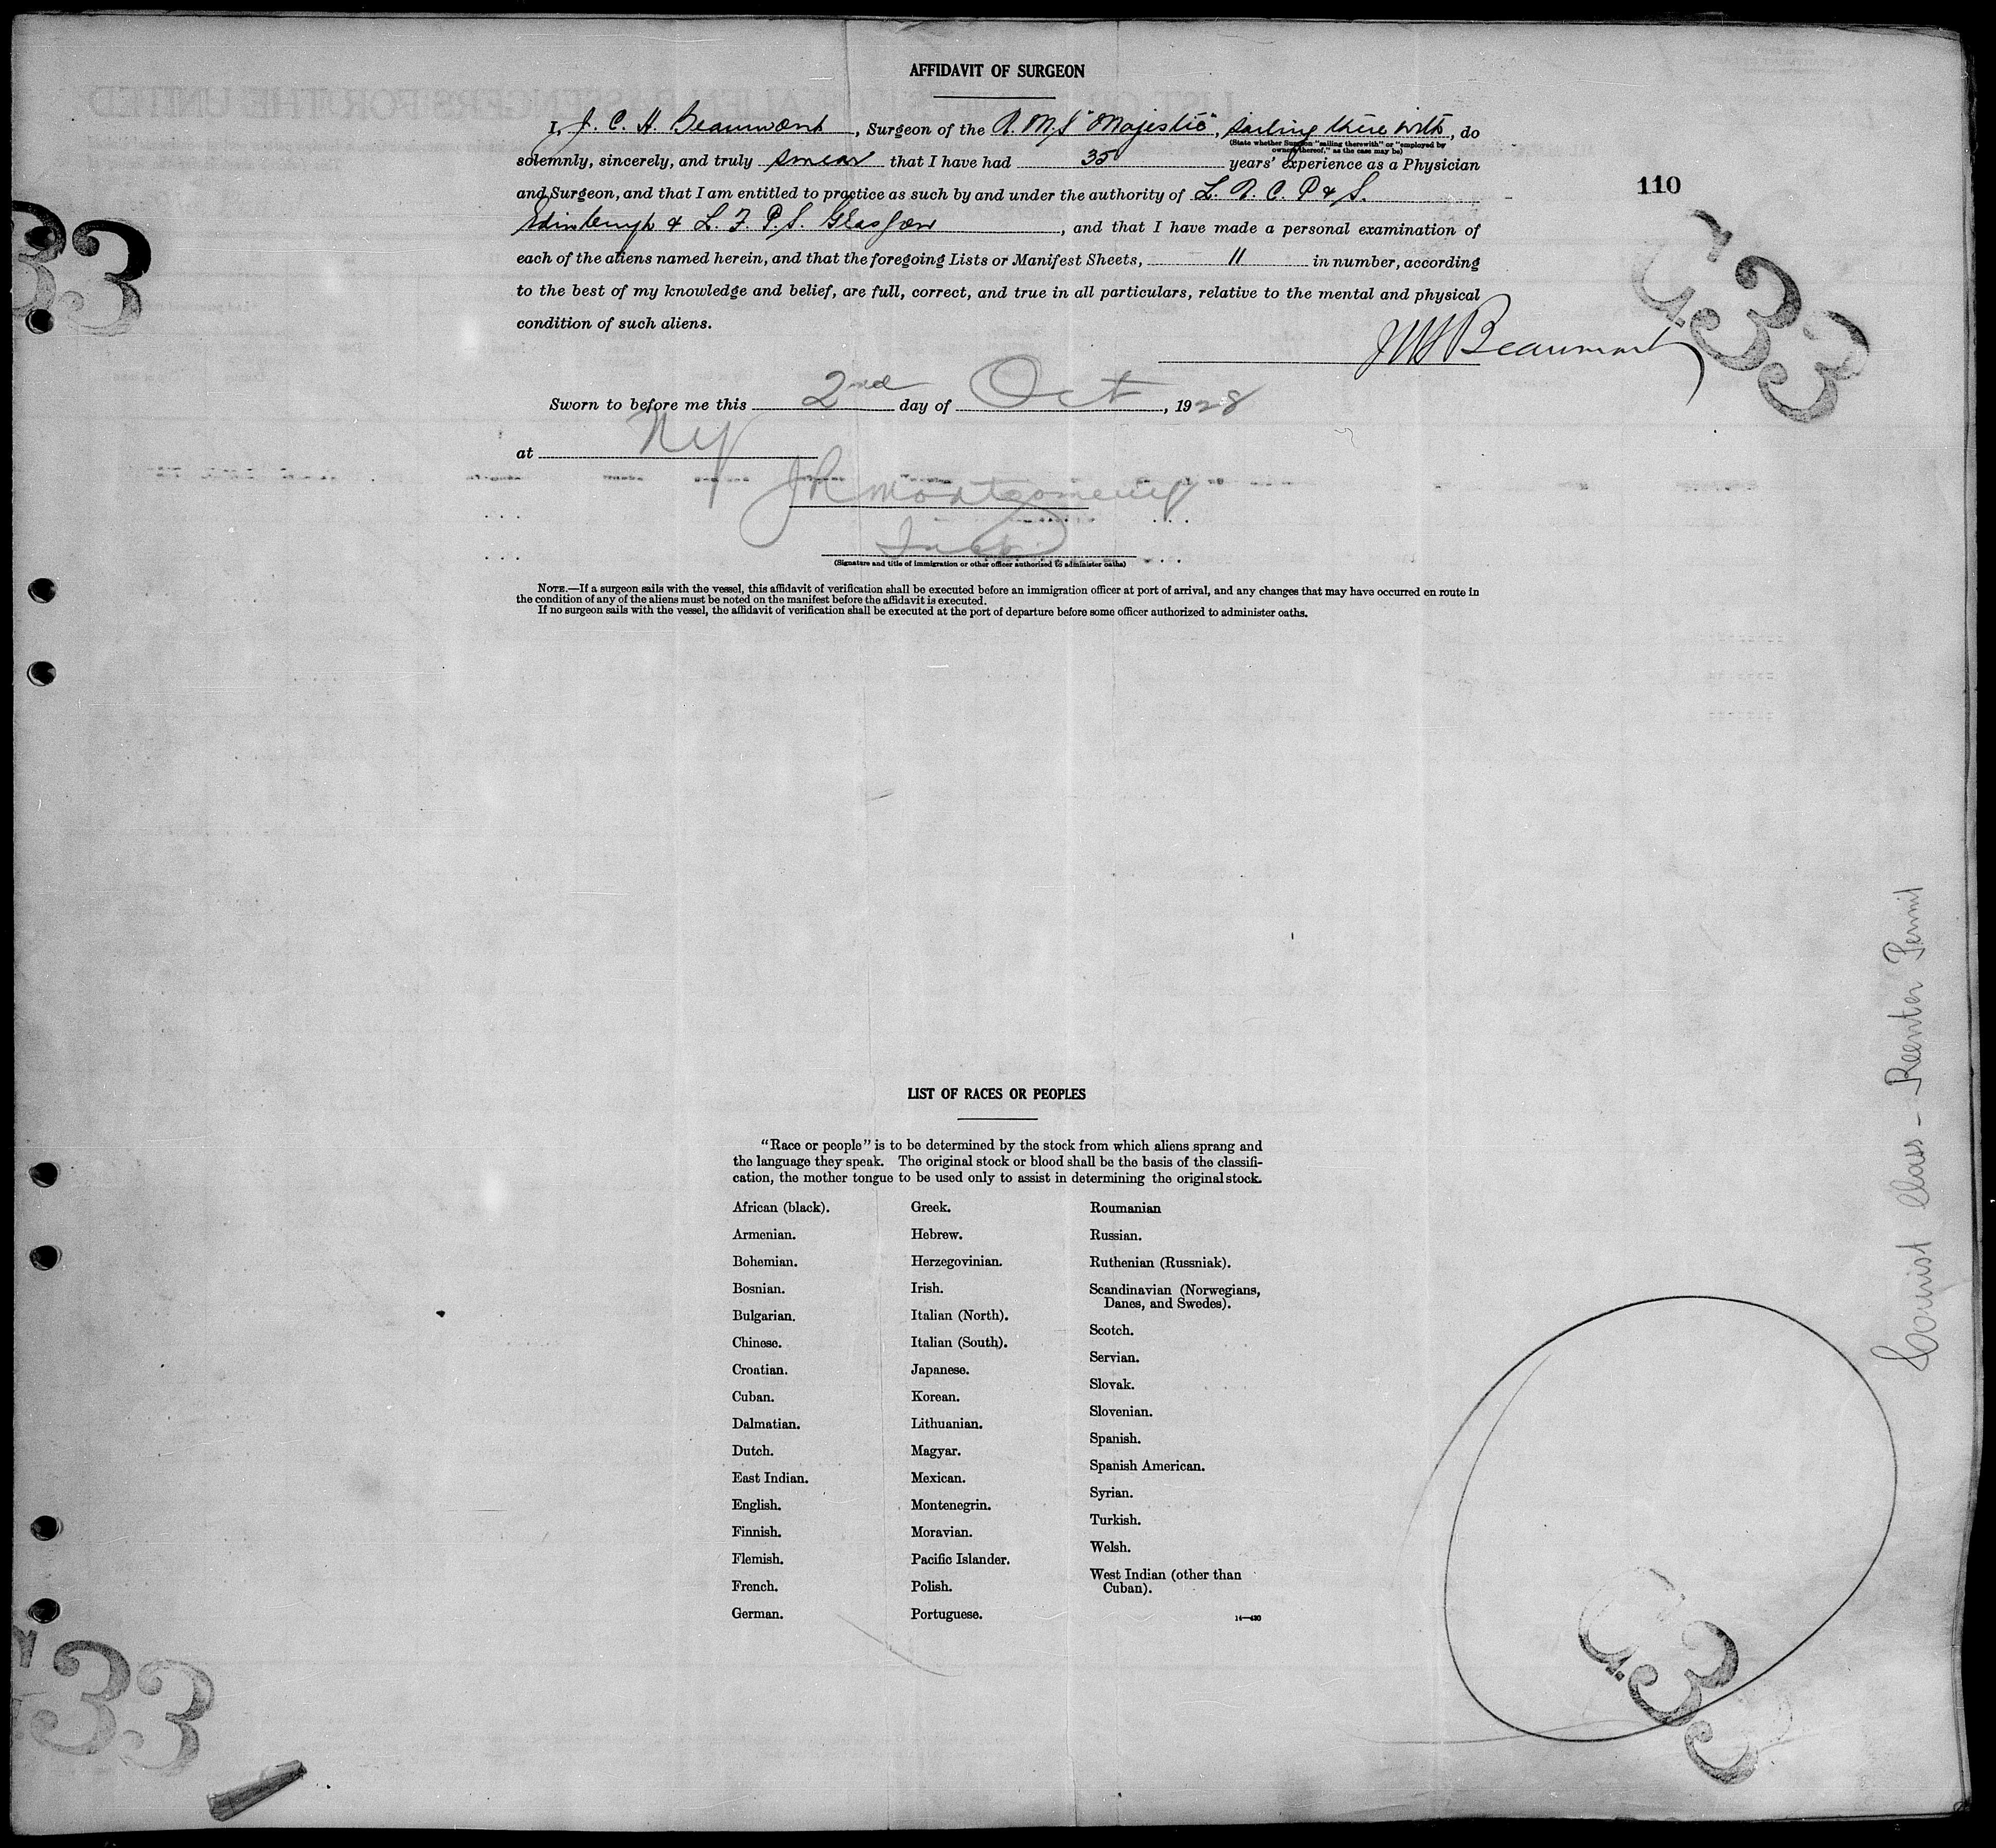 AFFIDAVIT OF SURGEON
I, J. C. H. Beaumont, Surgeon of the R.M.S "Majestic", sailing therewith, do
(State whether Surgeon "sailing therewith" or "employed by
owners thereof," as the case may be)
solemnly, sincerely, and truly swear that I have had 35 years' experience as a Physician
and Surgeon, and that I am entitled to practice as such by and under the authority of L. R. C. P & S.
Edinburgh & L. F. P. S. Glasgow, and that I have made a personal examination of
each of the aliens named herein, and that the foregoing Lists or Manifest Sheets, 11 in number, according
to the best of my knowledge and belief, are full, correct, and true in all particulars, relative to the mental and physical
condition of such aliens.
JCH Beaumont
Sworn to before me this 2nd day of Oct, 1928
at NY
JR Montgomery
Insp
(Signature and title of immigration or other officer authorized to administer oaths)
NOTE.—If a surgeon sails with the vessel, this affidavit of verification shall be executed before an immigration officer at port of arrival, and any changes that may have occurred en route in
the condition of any of the aliens must be noted on the manifest before the affidavit is executed.
If no surgeon sails with the vessel, the affidavit of verification shall be executed at the port of departure before some officer authorized to administer oaths.
110
33
33
33
33
Tourist Class - Reenter Permit
LIST OF RACES OR PEOPLES
"Race or people" is to be determined by the stock from which aliens sprang and
the language they speak. The original stock or blood shall be the basis of the classifi-
cation, the mother tongue to be used only to assist in determining the original stock.
African (black).
Armenian.
Bohemian.
Bosnian.
Bulgarian.
Chinese.
Croatian.
Cuban.
Dalmatian.
Dutch.
East Indian.
English.
Finnish.
Flemish.
French.
German.
Greek.
Hebrew.
Herzegovinian.
Irish.
Italian (North).
Italian (South).
Japanese.
Korean.
Lithuanian.
Magyar.
Mexican.
Montenegrin.
Moravian.
Pacific Islander.
Polish.
Portuguese.
Roumanian
Russian.
Ruthenian (Russniak).
Scandinavian (Norwegians,
Danes, and Swedes).
Scotch.
Servian.
Slovak.
Slovenian.
Spanish.
Spanish American.
Syrian.
Turkish.
Welsh.
West Indian (other than
Cuban).
14—430